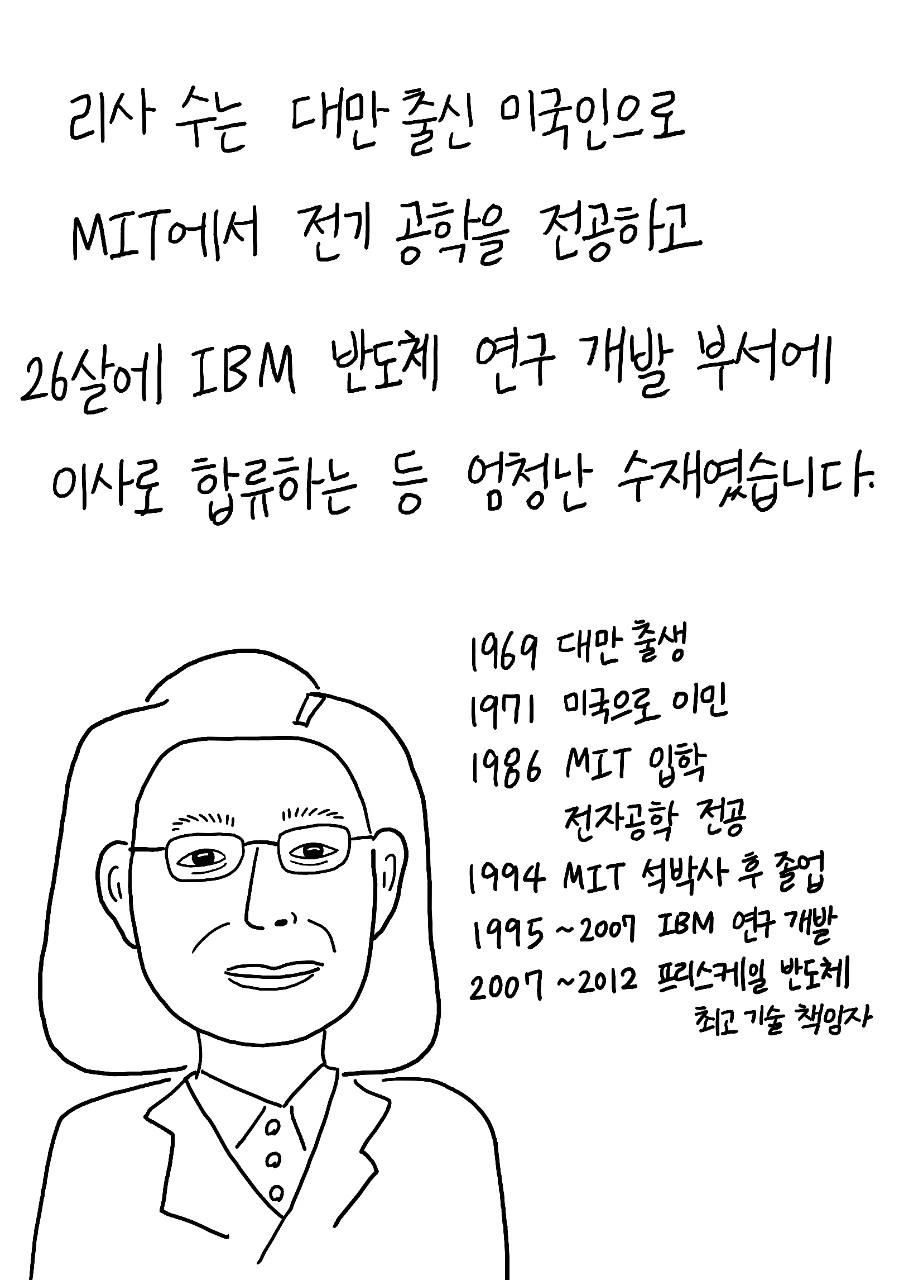 리사 수는 대만 출신 미국인으로
MIT에서 전기 공학을 전공하고
26살에 IBM 반도체 연구 개발 부서에
이사로 합류하는 등 엄청난 수재였습니다.
1969 대만 출생
1971 미국으로 이민
1986 MIT 입학
전자공학 전공
1994 MIT 석박사 후 졸업
1995 ~2007 IBM 연구 개발
2007 ~2012 프리스케일 반도체
최고 기술 책임자